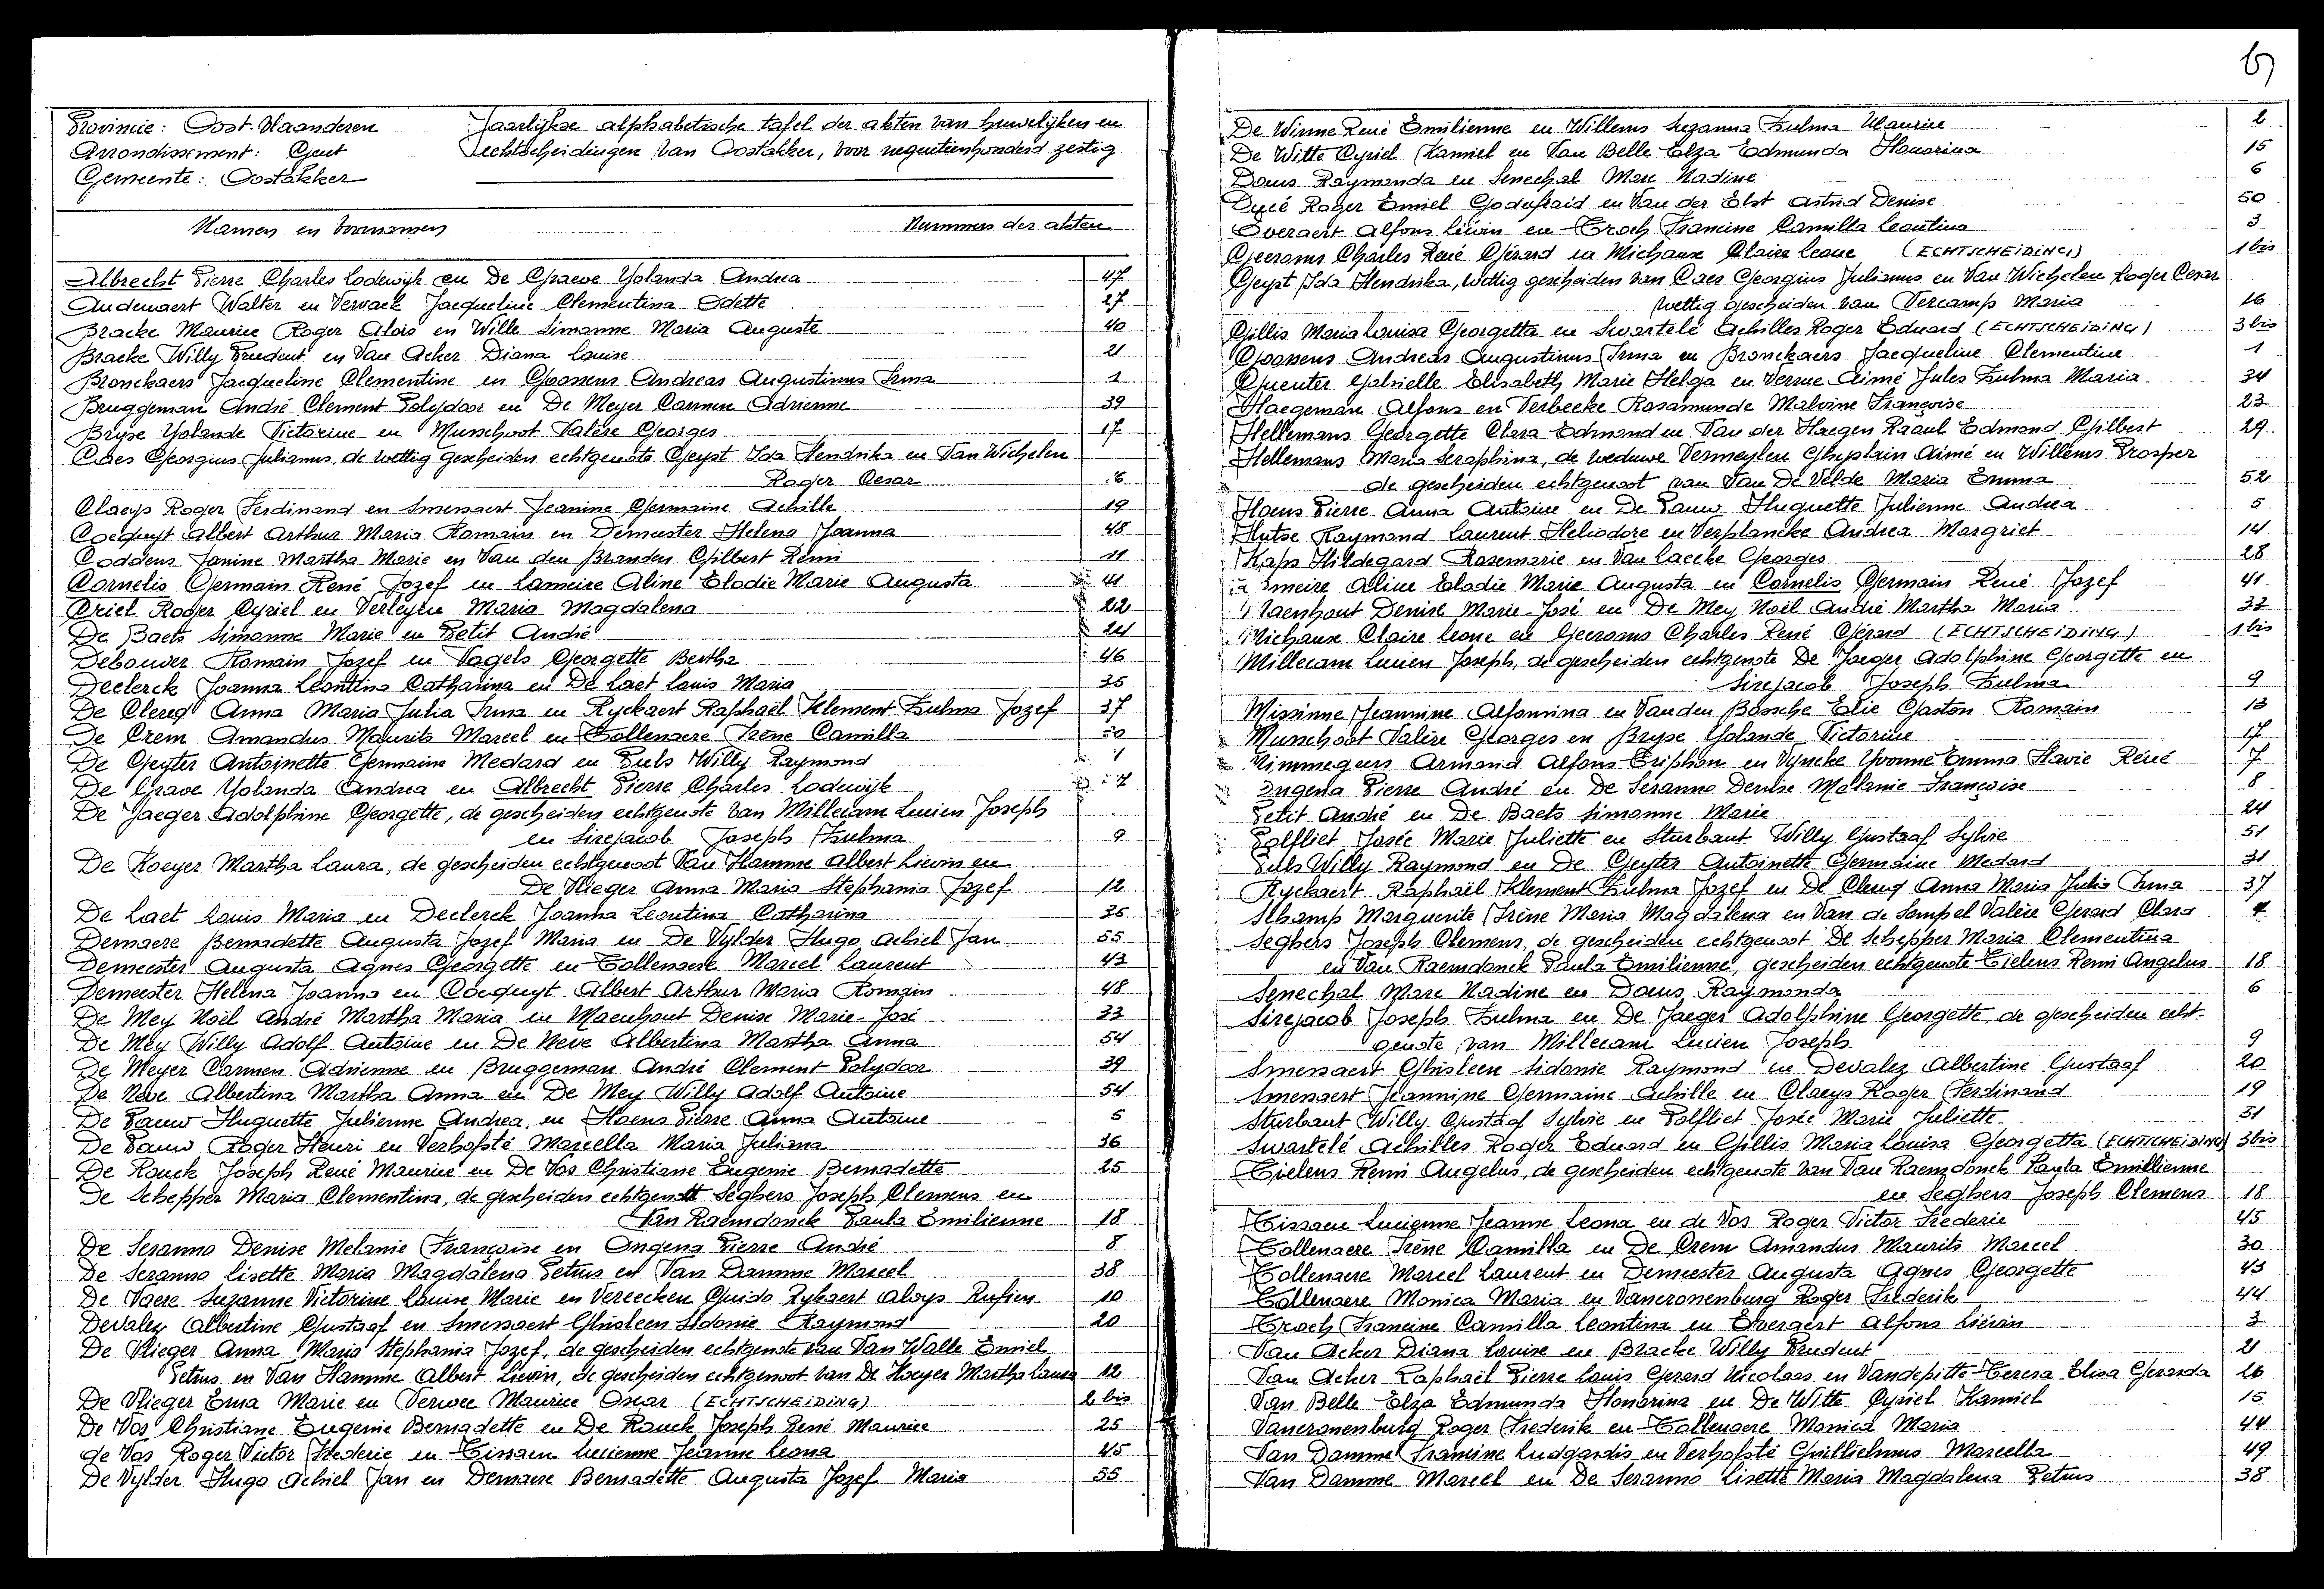 Provincie: Oost-Vlaanderen
Arrondissement: Gent
Gemeente: Oostakker
Jaarlijkse alphabetische tafel der akten van huwelijken en
echtscheidingen van Oostakker, voor negentienhonderd zestig
Namen en voornamen Nummers der akten
Albrecht Pierre Charles Lodewijk en De Graeve Yolanda Andrea 47
Audenaert Walter en Vervaek Jacqueline Clementina Odette 27
Bracke Maurice Roger Alois en Wille Simonne Maria Auguste 40
Bracke Willy Prudent en Van Acker Diana Louise 21
Bronckaers Jacqueline Clementine en Goossens Andreas Augustinus Irma 1
Bruggeman André Clement Polydoor en De Meyer Carmen Adrienne 39
Bryse Yolande Victorine en Musschoot Valère Georges 17
Caes Georgius Julianus, de wettig gescheiden echtgenote Geyst Ida Hendrika en Van Wichelen
Roger Cesar 6
Claeys Roger Ferdinand en Smessaert Jeanine Germaine Achille 19
Coequyt Albert Arthur Maria Romain en Demeester Helena Joanna 48
Coddens Janine Martha Marie en Van den Branden Gilbert Remi 11
Cornelis Germain René Jozef en Lameire Aline Elodie Marie Augusta 41
Criel Roger Cyriel en Verleyen Maria Magdalena 22
De Baets Simonne Marie en Petit André 24
Debouver Romain Jozef en Vogels Georgette Bertha 46
Declerck Joanna Leontina Catharina en De Laet Louis Maria 35
De Clercq Anna Maria Julia Irma en Ryckaert Raphaël Klement Zulma Jozef 37
De Crem Amandus Maurits Marcel en Tollenaere Irène Camilla 30
De Geyter Antoinette Germaine Medard en Puls Willy Raymond 1
De Grave Yolanda Andrea en Albrecht Pierre Charles Lodewijk 7
De Jaeger Adolphine Georgette, de gescheiden echtgenote van Millecam Lucien Joseph
en Sirejacob Joseph Zulma 9
De Koeyer Martha Laura, de gescheiden echtgenoot Van Hamme Albert Lievin en
De Vlieger Anna Maria Stephania Jozef 12
De Laet Louis Maria en Declerck Joanna Leontina Catharina 35
Demaere Bernadette Augusta Jozef Maria en De Vylder Hugo Achiel Jan 55
Demeester Augusta Agnes Georgette en Tollenaere Marcel Laurent 43
Demeester Helena Joanna en Coequyt Albert Arthur Maria Romain 48
De Mey Noël André Martha Maria en Maenhout Denise Marie-José 33
De Mey Willy Adolf Antoine en De Neve Albertina Martha Anna 54
De Meyer Carmen Adrienne en Bruggeman André Clement Polydoor 39
De Neve Albertina Martha Anna en De Mey Willy Adolf Antoine 54
De Pauw Huguette Julienne Andrea en Hoens Pierre Anna Antoine 5
De Pauw Roger Henri en Verhofsté Marcella Maria Juliana 36
De Rouck Joseph René Maurice en De Vos Christiane Eugenie Bernadette 25
De Schepper Maria Clementina, de gescheiden echtgenott Seghers Joseph Clemens en
Van Raemdonck Paula Emilienne 18
De Seranno Denise Melanie Françoise en Ongena Pierre André 8
De Seranno Lisette Maria Magdalena Petrus en Van Damme Marcel 38
De Vaere Suzanne Victorine Louise Marie en Vereecken Guido Rykaert Aloys Rufien 10
Devalez Albertine Gustaaf en Smessaert Ghisleen Sidonie Raymond 20
De Vlieger Anna Maria Stephania Jozef, de gescheiden echtgenote van Van Walle Emiel
Petrus en Van Hamme Albert Lievin, de gescheiden echtgenoot van De Koeyer Martha Laura 12
De Vlieger Erna Marie en Verwee Maurice Oscar (ECHTSCHEIDING) 2 bis
De Vos Christiane Eugenie Bernadette en De Rouck Joseph René Maurice 25
de Vos Roger Victor Frederic en Tissaen Lucienne Jeanne Leona 45
De Vylder Hugo Achiel Jan en Demaere Bernadette Augusta Jozef Maria 55
6
De Winne René Emilienne en Willems Suzanna Zulma Maurice 2
De Witte Cyriel Kamiel en Van Belle Elza Edmunda Honorina 15
Doens Raymonda en Senechal Marc Nadine 6
Ducé Roger Emiel Godefroid en Van der Elst Astrid Denise 50
Everaert Alfons Liévin en Troch Francine Camilla Leontina 3
Geeroms Charles René Gérard en Michaux Claire Leone (ECHTSCHEIDING) 1 bis
Geyst Ida Hendrika, wettig gescheiden van Caes Georgius Julianus en Van Wichelen Roger Cesar
wettig gescheiden van Vercamp Maria 16
Gillis Maria Louisa Georgetta en Swartelé Achilles Roger Eduard (ECHTSCHEIDING) 3 bis
Goossens Andreas Augustinus Irma en Bronckaers Jacqueline Clementine 1
Guenter Gabrielle Elisabeth Marie Helga en Verme Aimé Jules Zulma Maria 34
Haegeman Alfons en Verbeeke Rosamunde Malvine Françoise 23
Hellemans Georgette Clara Edmond en Van der Haegen Raoul Edmond Gilbert 29
Hellemans Maria Seraphina, de weduwe Vermeylen Ghyslain Aimé en Willems Prosper
de gescheiden echtgenoot van Van De Velde Maria Emma 52
Hoens Pierre Anna Antoine en De Pauw Huguette Julienne Andrea 5
Hutse Raymond Laurent Heliodore en Verplancke Andrea Margriet 14
Kaps Hildegard Rosemarie en Van Laecke Georges 28
Lameire Aline Elodie Marie Augusta en Cornelis Germain René Jozef 41
Maenhout Denise Marie-José en De Mey Noël André Martha Maria 33
Michaux Claire Leone en Geeroms Charles René Gérard (ECHTSCHEIDING) 1 bis
Millecam Lucien Joseph, de gescheiden echtgenote De Jaeger Adolphine Georgette en
Sirejacob Joseph Zulma 9
Missinne Jeannine Alfonsina en Van den Bossche Elie Gaston Romain 13
Musschoot Valère Georges en Bryse Yolande Victorine 17
Nimmegeers Armand Alfons Triphon en Vyncke Yvonne Emma Flavie Réné 7
Ongena Pierre André en De Seranno Denise Melanie Françoise 8
Petit André en De Baets Simonne Marie 24
Polfliet Josée Marie Juliette en Sturbaut Willy Gustaaf Sylvie 51
Puls Willy Raymond en De Geyter Antoinette Germaine Medard 31
Ryckaert Raphaël Klement Zulma Jozef en De Clercq Anna Maria Julia Irma 37
Schamp Marguerite Irène Maria Magdalena en Van de Sompel Valère Gerard Clara 4
Seghers Joseph Clemens, de gescheiden echtgenoot De Schepper Maria Clementina
en Van Raemdonck Paula Emilienne, gescheiden echtgenote Tielens Remi Angelus 18
Senechal Marc Nadine en Doens Raymonda 6
Sirejacob Joseph Zulma en De Jaeger Adolphine Georgette, de gescheiden echt-
genote van Millecam Lucien Joseph 9
Smessaert Ghisleen Sidonie Raymond en Devalez Albertine Gustaaf 20
Smessaert Jeannine Germaine Achille en Claeys Roger Ferdinand 19
Sturbaut Willy Gustaaf Sylvie en Polfliet Josée Marie Juliette 51
Swartelé Achilles Roger Eduard en Gillis Maria Louisa Georgetta (ECHTSCHEIDING) 3 bis
Tielens Remi Angelus, de gescheiden echtgenote van Van Raemdonck Paula Emillienne
en Seghers Joseph Clemens 18
Tissaen Lucienne Jeanne Leona en de Vos Roger Victor Frederic 45
Tollenaere Irène Camilla en De Crem Amandus Maurits Marcel 30
Tollenaere Marcel Laurent en Demeester Augusta Agnes Georgette 43
Tollenaere Monica Maria en Vancronenburg Roger Frederik 44
Troch Francine Camilla Leontina en Everaert Alfons Liévin 3
Van Acker Diana Louise en Bracke Willy Prudent 21
Van Acker Raphaël Pierre Louis Gerard Nicolaas en Vandepitte Teresa Elisa Gerarda 26
Van Belle Elza Edmunda Honorina en De Witte Cyriel Kamiel 15
Vancronenburg Roger Frederik en Tollenaere Monica Maria 44
Van Damme Francine Ludgardis en Verhofsté Guilliehmus Marcella 49
Van Damme Marcel en De Seranno Lisette Maria Magdalena Petrus 38